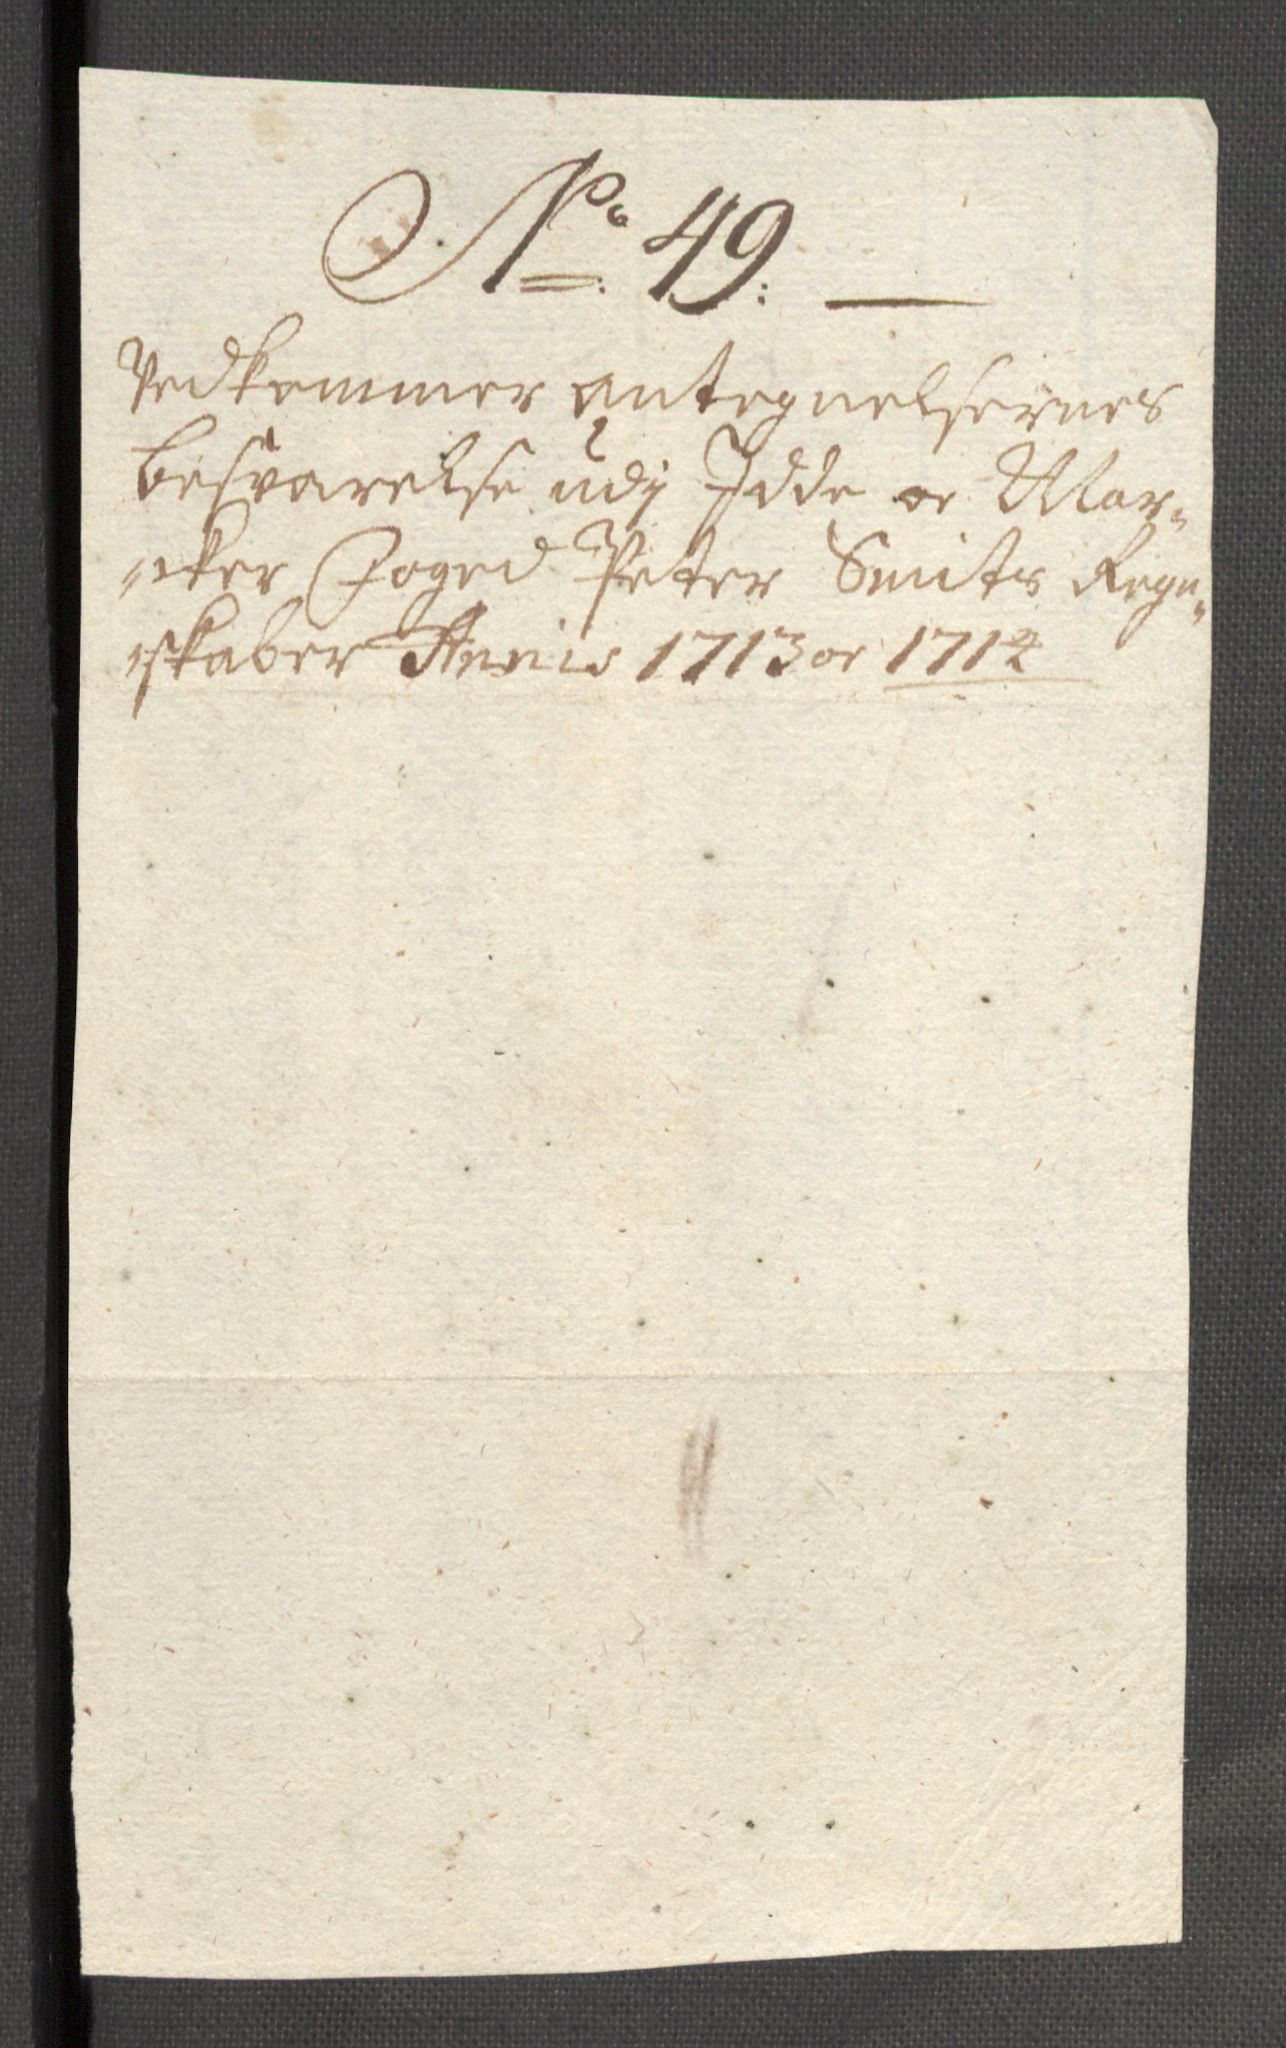 No. 49: —
Vedkommer antegnelsernes
besvarelse udj Idde oc Mar-
cker Foged Peter Smits Regn-
skaber Annis 1713 oc 1714